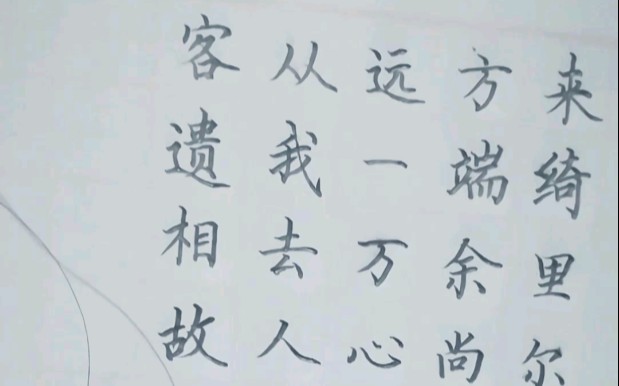 客从远方来
遗我一端绮
相去万余里
故人心尚尔